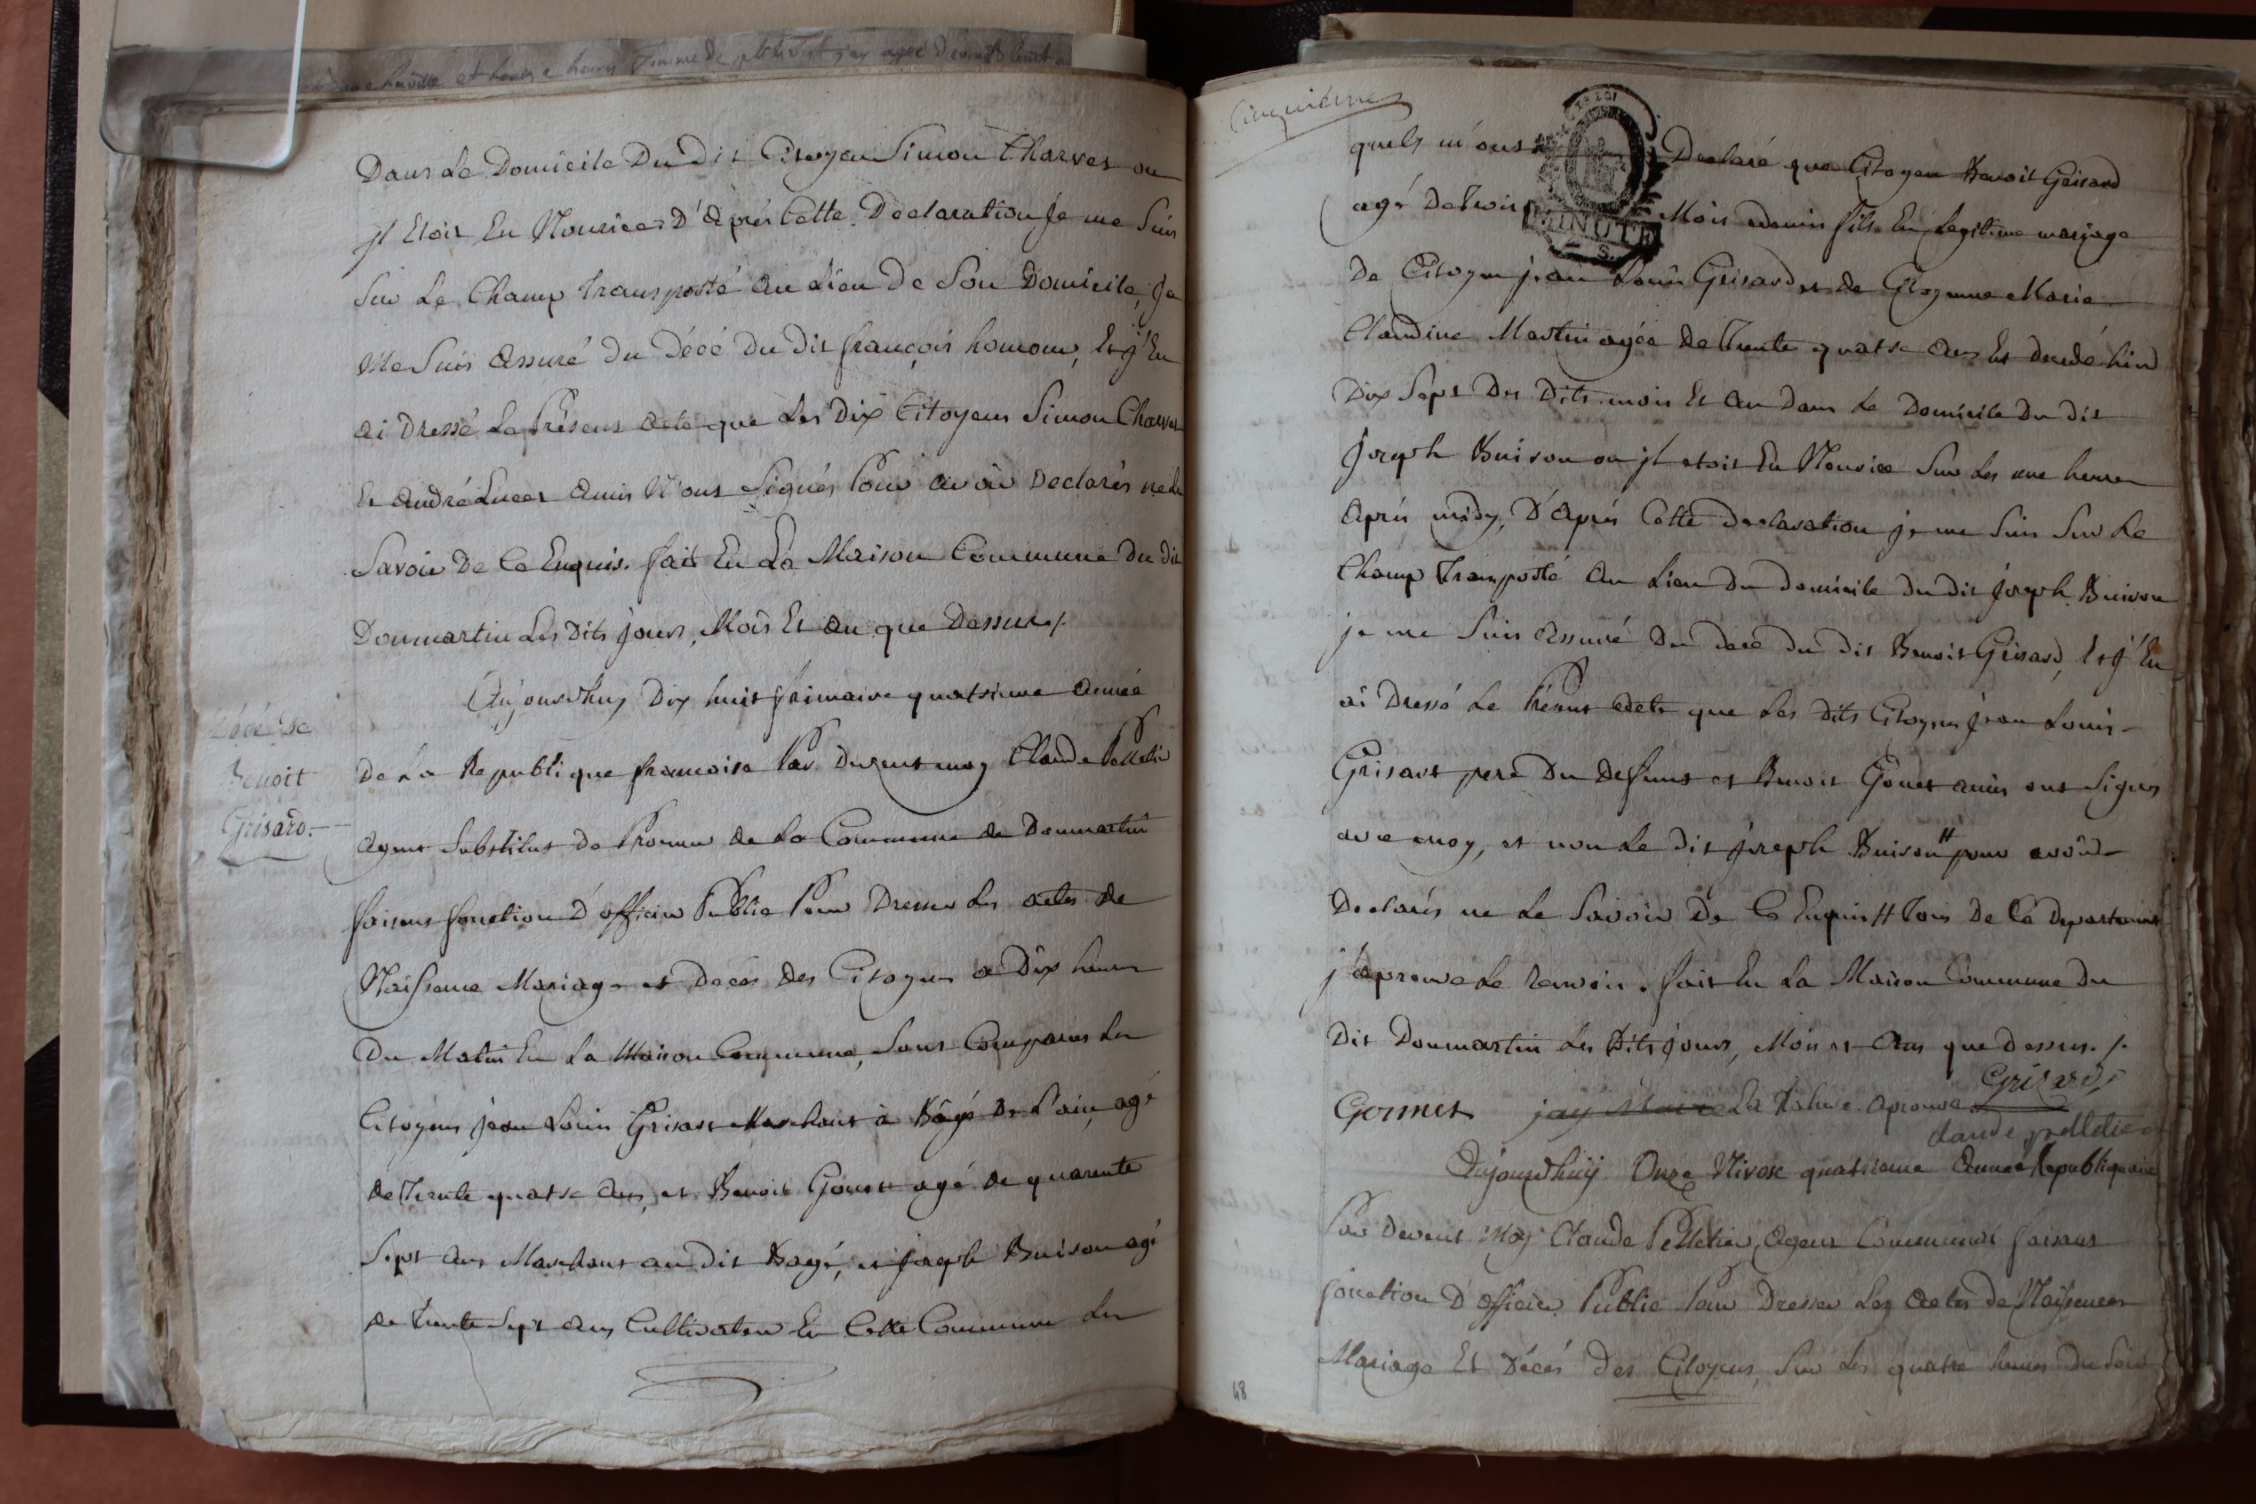 Dans Le Domicile Du dit Citoyen Simon Charvet ou
jl Etoit En Nourice, D'après Cette Declaration je me Suis
Sur Le Champ transporté au Lieu De Son Domicile, je
Me Suis assuré du Décé Du Dit françois homour, Et j'En
ai Dressé Le Présent acte que Les Dix Citoyens Simon Charvet
Et andré Lucet amis N'ont Signés Pour avoir Declarés ne Le
Savoir De Ce Enquis. fait En La Maison Commune Du dit
Donmartin Les Dits jours, Mois Et an que Dessus ./.
Décé de
Benoit
Grisard.
Aujourd'huy Dix huit frimaire quatrieme année
De La Republique francoise Par Devent moy Claude Pelletier
agent Substitut De Procureur de La Commune de Donmartin
faisent fonction D'officier Public Pour Dresser Les actes de
Naissence Mariage et Décés Des Citoyens a Dix heures
Du Matin En La Maison Commune, Sont Comparus Les
Citoyens jean Louis Grisart Marchant à Bâgé De Lain, agé
de Trente quatre ans, et Benoit Gonet agé de quarente
Sept ans Marchant au dit Bagé, et joseph Buison agé
de trente Sept ans Cultivateur En Cette Commune Les
Cinquième
quels m'ont Declaré que Citoyen Benoit Grisard
agé De trois Mois Fils En Legitime mariage
MINUTE
De Citoyen jean Louis Grisard et de Citoyenne Marie
Claudine Martin agée De Trente quatre ans Est Decedé hier
Dix Sept Des Dits mois Et an Dans Le Domicile Du dit
joseph Buison ou jl etoit En Nourice Sur Les une heure
Après midy, D'après Cette Declaration je me Suis Sur Le
Champ Transporté au Lieu Du Domicile Du dit joseph Buison
je me Suis assuré Du decé du dit Benoit Grisard, Et j'En
ai Dressé Le Présent acte que Les Dits Citoyens jean Louis
Grisart pere Du Defunt et Benoit Gonet amis ont Signés
avec moy, et non Le Dit joseph Buison # pour avoir
Declarés ne Le Savoir De Ce Enquis # Tous De Ce Departement
j'aprouve Le renvoi. fait En La Maison Commune Du
Dit Donmartin Les Dits jours, Mois et Ans que Dessus. /.
Gonnet La Rature aprouve Grisard
claude pelletier
Aujourd'huij Onze Nivose quatrieme Année Republiquaine
Par Devent Moy Claude Pelletier, Agent Communal faisant
fonction D'officier Public Pour Dresser Les actes de Naissences
Mariage Et Décés Des Citoyens, Sur Les quatre heures Du Soir
48